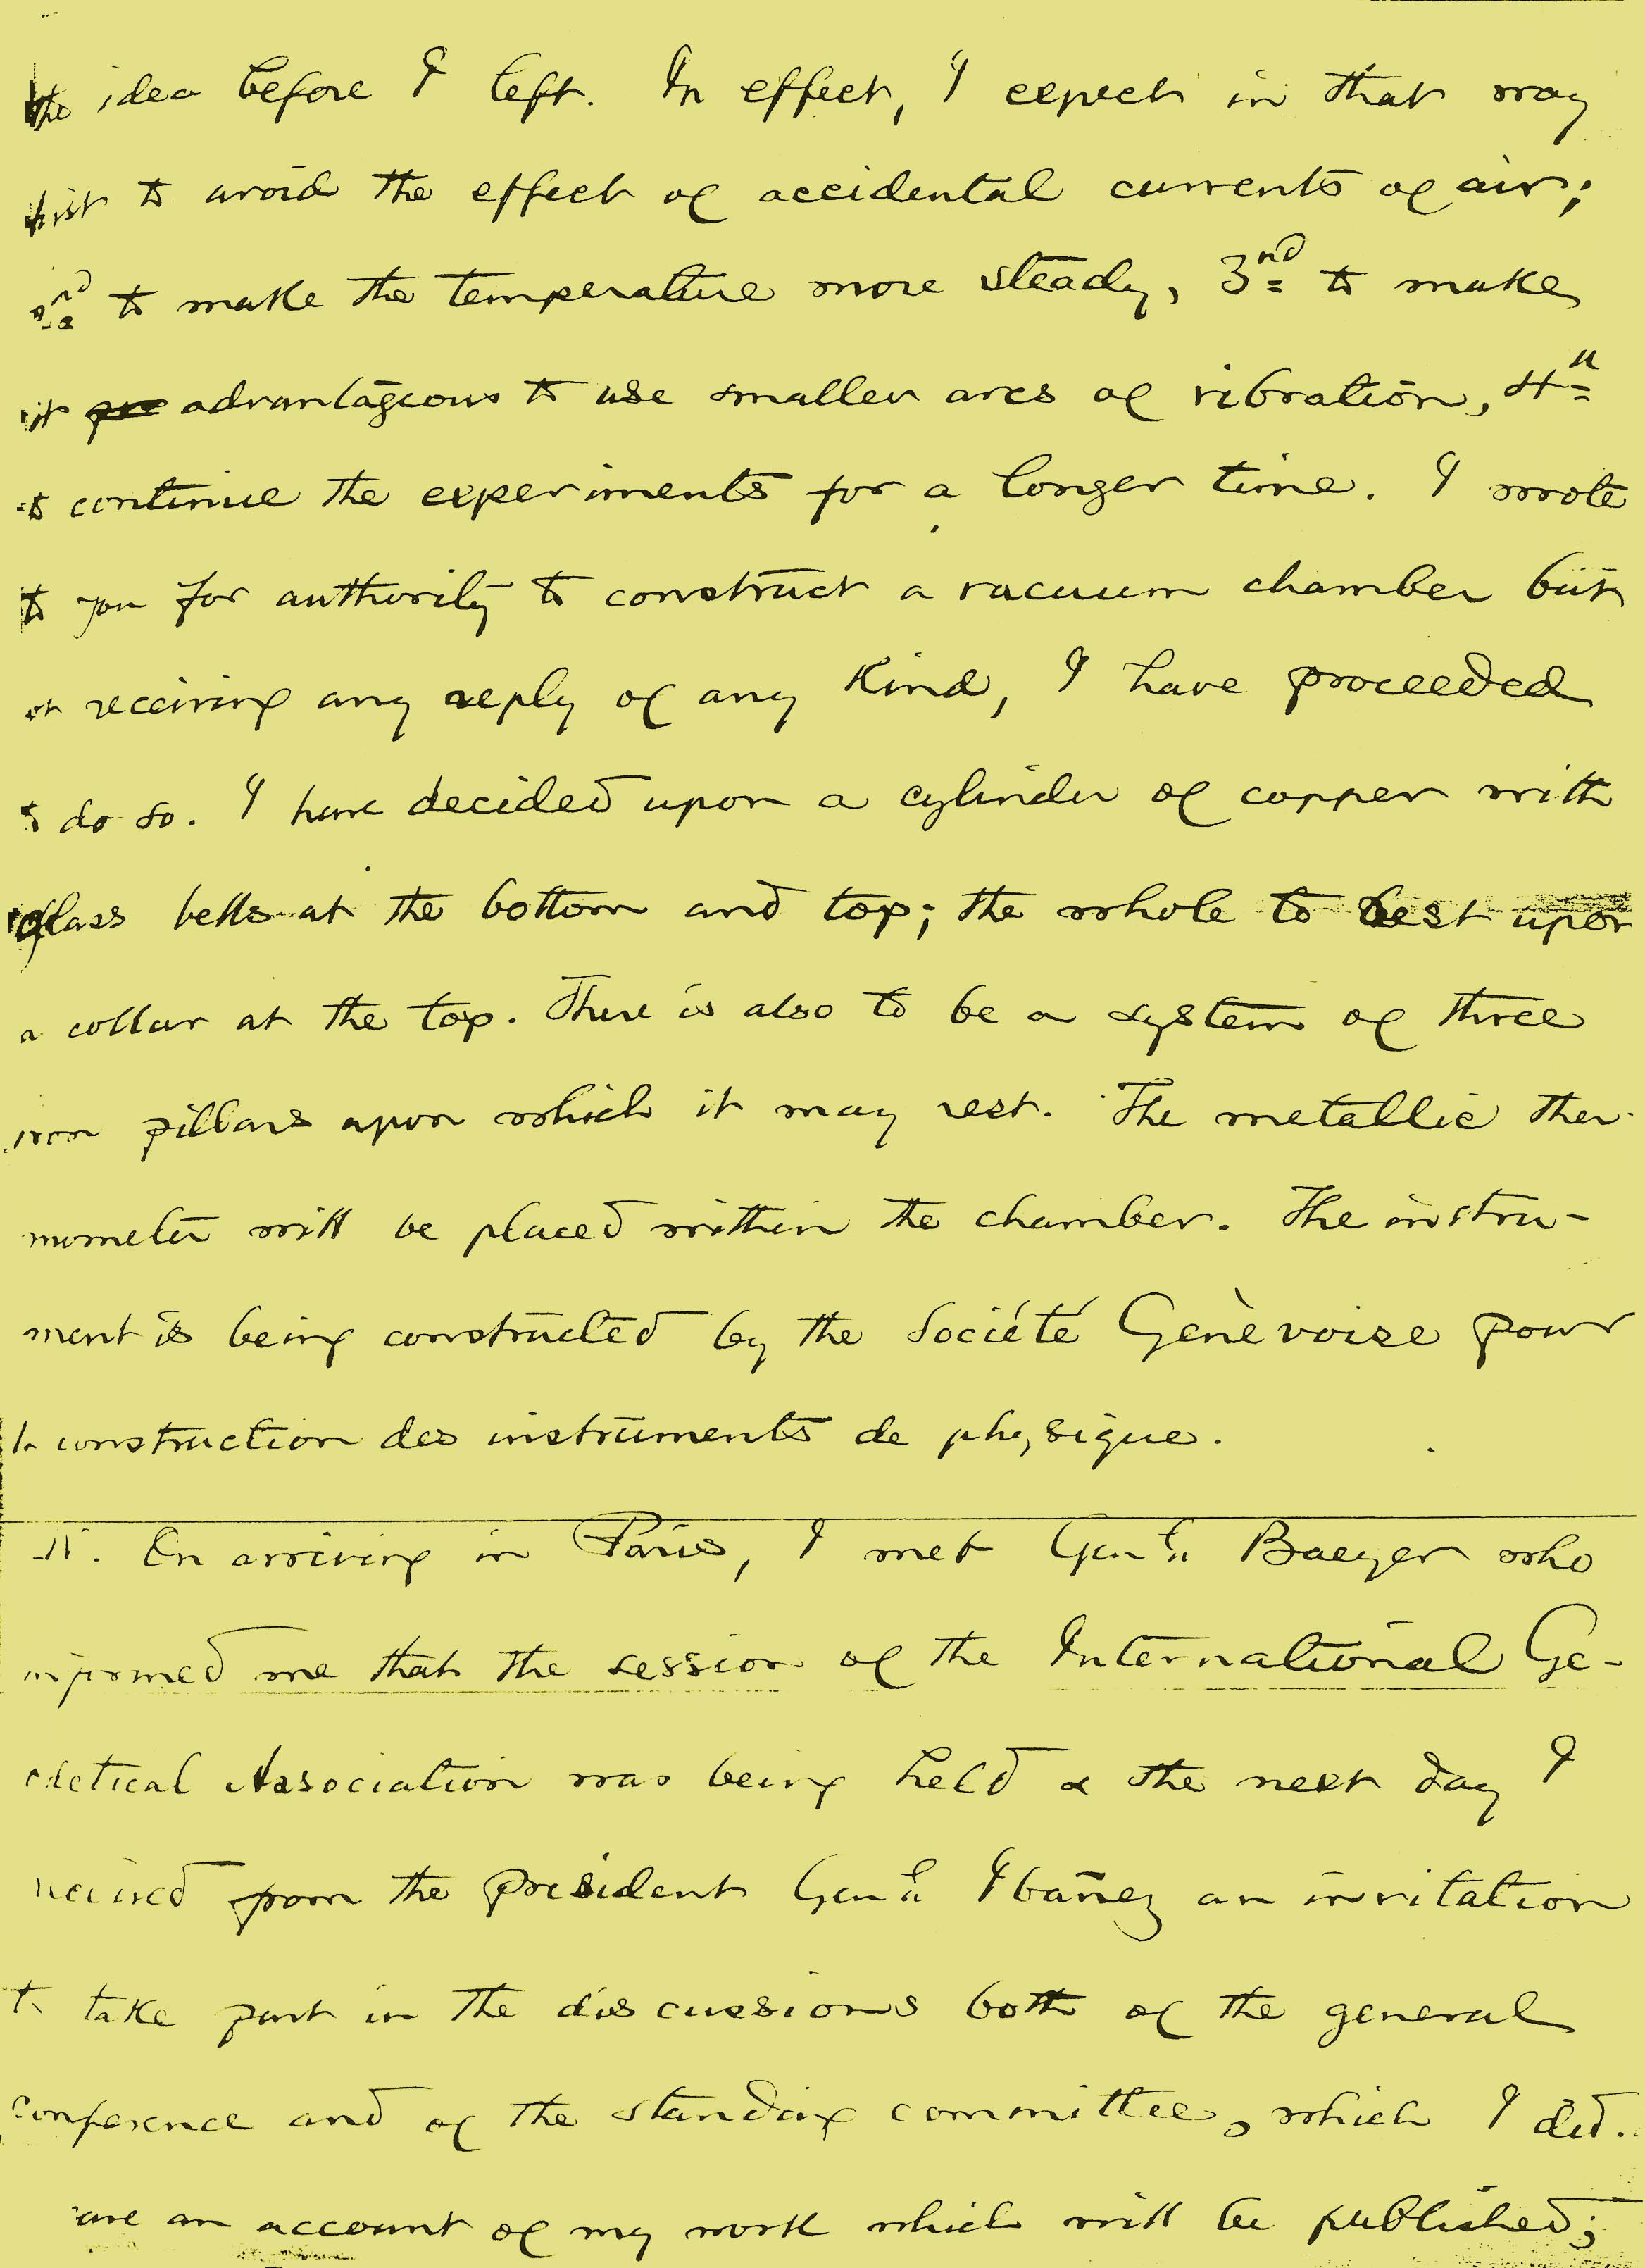 the idea before I left. In effect, I expect in that way
first to avoid the effect of accidental currents of air;
2nd to make the temperature more steady, 3nd to make
it advantageous to use smaller arcs of vibration, 4th
to continue the experiments for a longer time. I wrote
to you for authority to construct a vacuum chamber but
not receiving any reply of any kind, I have proceeded
to do so. I have decided upon a cylinder of copper with
glass bells at the bottom and top; the whole to rest upon
a collar at the top. There is also to be a system of three
iron pillars upon which it may rest. The metallic ther-
mometer will be placed within the chamber. The instru-
ment is being constructed by the Société Genèvoise pour
la construction des instruments de physique.
On arriving in Paris, I met Genll Baeyer who
informed me that the session of the International Ge-
odetical Association was being held & the next day I
received from the president Genll Ibañez an invitation
to take part in the discussions both of the general
conference and of the standing committee, which I did.
gave an account of my work which will be published;